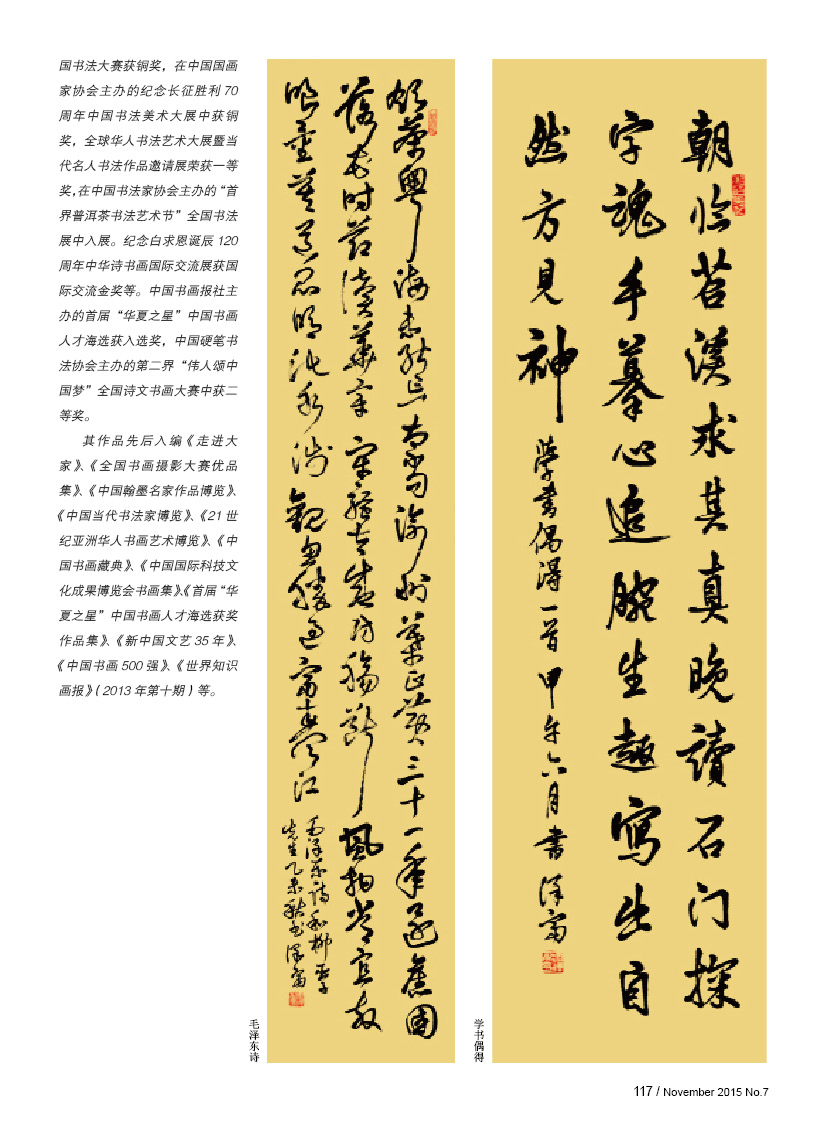 国书法大赛获铜奖，在中国国画
家协会主办的纪念长征胜利 70
周年中国书法美术大展中获铜
奖，全球华人书法艺术大展暨当
代名人书法作品邀请展荣获一等
奖，在中国书法家协会主办的“首
界普洱茶书法艺术节”全国书法
展中入展。纪念白求恩诞辰 120
周年中华诗书画国际交流展获国
际交流金奖等。中国书画报社主
办的首届“华夏之星”中国书画
人才海选获入选奖，中国硬笔书
法协会主办的第二界“伟人颂中
国梦”全国诗文书画大赛中获二
等奖。
其作品先后入编《走进大
家》、《全国书画摄影大赛优品
集》、《中国翰墨名家作品博览》、
《中国当代书法家博览》、《21 世
纪亚洲华人书画艺术博览》、《中
国书画藏典》、《中国国际科技文
化成果博览会书画集》、《首届“华
夏之星”中国书画人才海选获奖
作品集》、《新中国文艺 35 年》、
《中国书画 500 强》、《世界知识
画报》（2013 年第十期）等。
饮茶粤海未能忘索句渝州葉正黄三十一年還舊國
落花時节讀華章牢騷太盛防腸斷風物長宜放
眼量莫道昆明池水淺觀魚勝過富春江
毛澤东詩和柳亞子
先生乙未秋书泽富
毛泽东诗
朝临苕溪求其真晚讀石门探
字魂手摹心追腕生趣寫出自
然方見神
學書偶得一首甲午六月書泽富
学书偶得
117 / November 2015 No.7